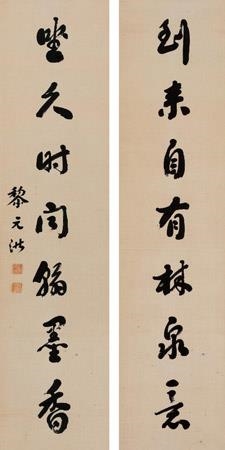 到来自有林泉意
坐久时闻翰墨香
黎元洪